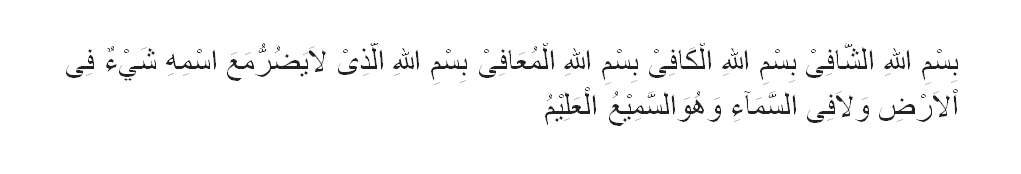 بِسْمِ اللهِ الشَّافِىْ بِسْمِ اللهِ الْكَافِىْ بِسْمِ اللهِ الْمُعَافِىْ بِسْمِ اللهِ الَّذِىْ لاَيَضُرُّمَعَ اسْمِهِ شَيْءٌ فِى
اْلاَرْضِ وَلاَفِى السَّمَآءِ وَهُوَالسَّمِيْعُ الْعَلِيْمُ